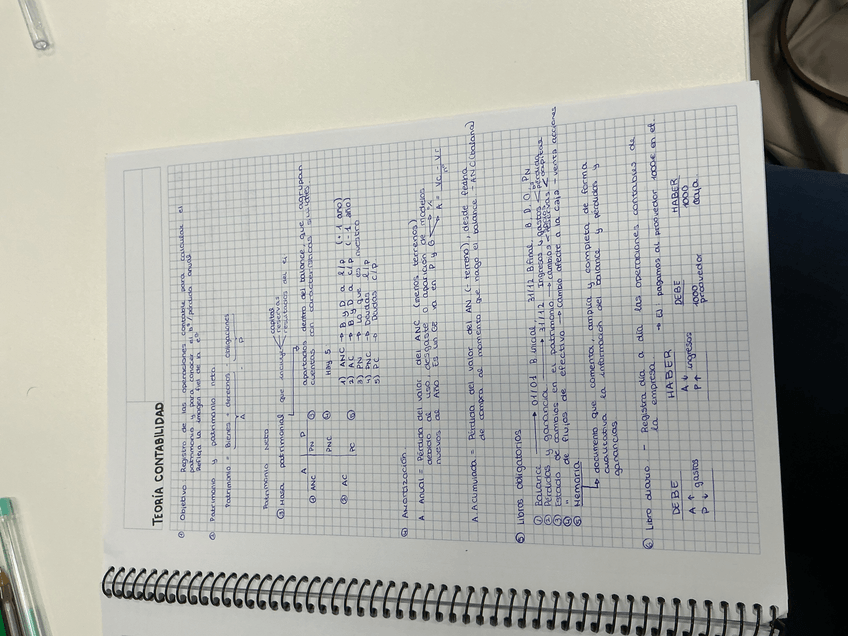 TEORÍA CONTABILIDAD
① Objetivo: Registro de las operaciones contable para calcular el
patrimonio y para conocer el Bº/pérdida anual
Refleja la imagen fiel de la eª
② Patrimonio y patrimonio neto:
Patrimonio = Bienes + derechos - obligaciones
A - P
Patrimonio Neto
capital
reservas
resultados del ej
③ Masa patrimonial que incluye
apartados dentro del balance, que agrupan
cuentas con características similares
A | P
① ANC | PN ③
PNC ④
② AC
PC ⑤
Hay 5
1) ANC → B y D a l/p (+ 1 año)
2) AC → B y D a c/p (- 1 año)
3) PN → lo que es nuestro
4) PNC → Deudas l/p
5) PC → Deudas c/p
④ Amortización
A. Anual = Pérdida del valor del ANC (menos terrenos)
debido al uso, desgaste o aparición de modelos
nuevos al año. Es un
A = Vc - Vr
nº
A. Acumulada = Pérdida del valor del AN (- terreno), desde fecha
de compra al momento que hago el balance - ANC (balance)
⑤ Libros obligatorios
① Balance → 01/01 B inicial 31/12 B final B, D, O, PN
② Pérdidas y ganancia → 31/12 Ingresos y gastos
③ Estado de cambios en el patrimonio → cambios
④ " de flujos de efectivo → Cambio afecte a la caja - venta acciones
⑤ Memoria
↳ documento que comenta, amplía y completa de forma
cualitativa la información del balance y pérdidas y
ganancias
⑥ Libro diario - Registra día a día las operaciones contables de
la empresa → Ej pagamos al proveedor 1000€ en et.
DEBE | HABER
A ↑ gastos | A ↓ ingresos
P ↓ | P ↑
DEBE HABER
1000 1000
proveedor caja